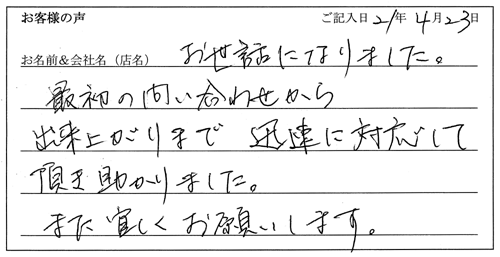 お客様の声 ご記入日 21年 4月 23日
お名前＆会社名（店名） お世話になりました。
最初の問い合わせから
出来上がりまで 迅速に対応して
頂き助かりました。
また宜しくお願いします。